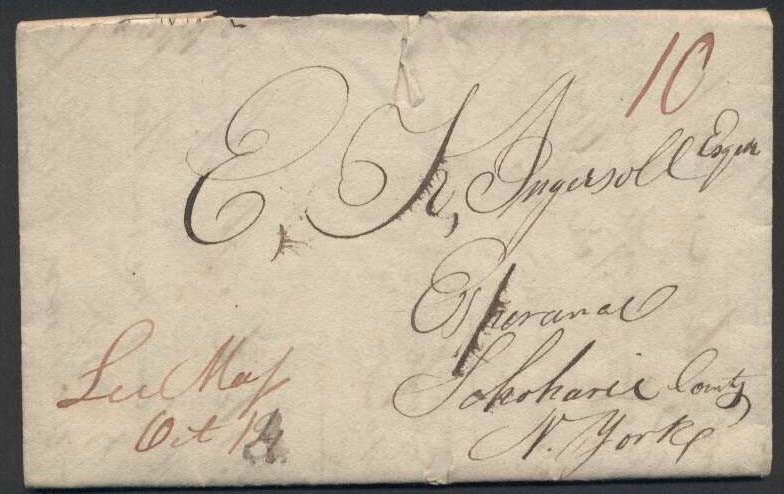 10
E. K, Ingersoll Esqr
Esperance
Schoharie County
N. York
Lee Mas
Oct